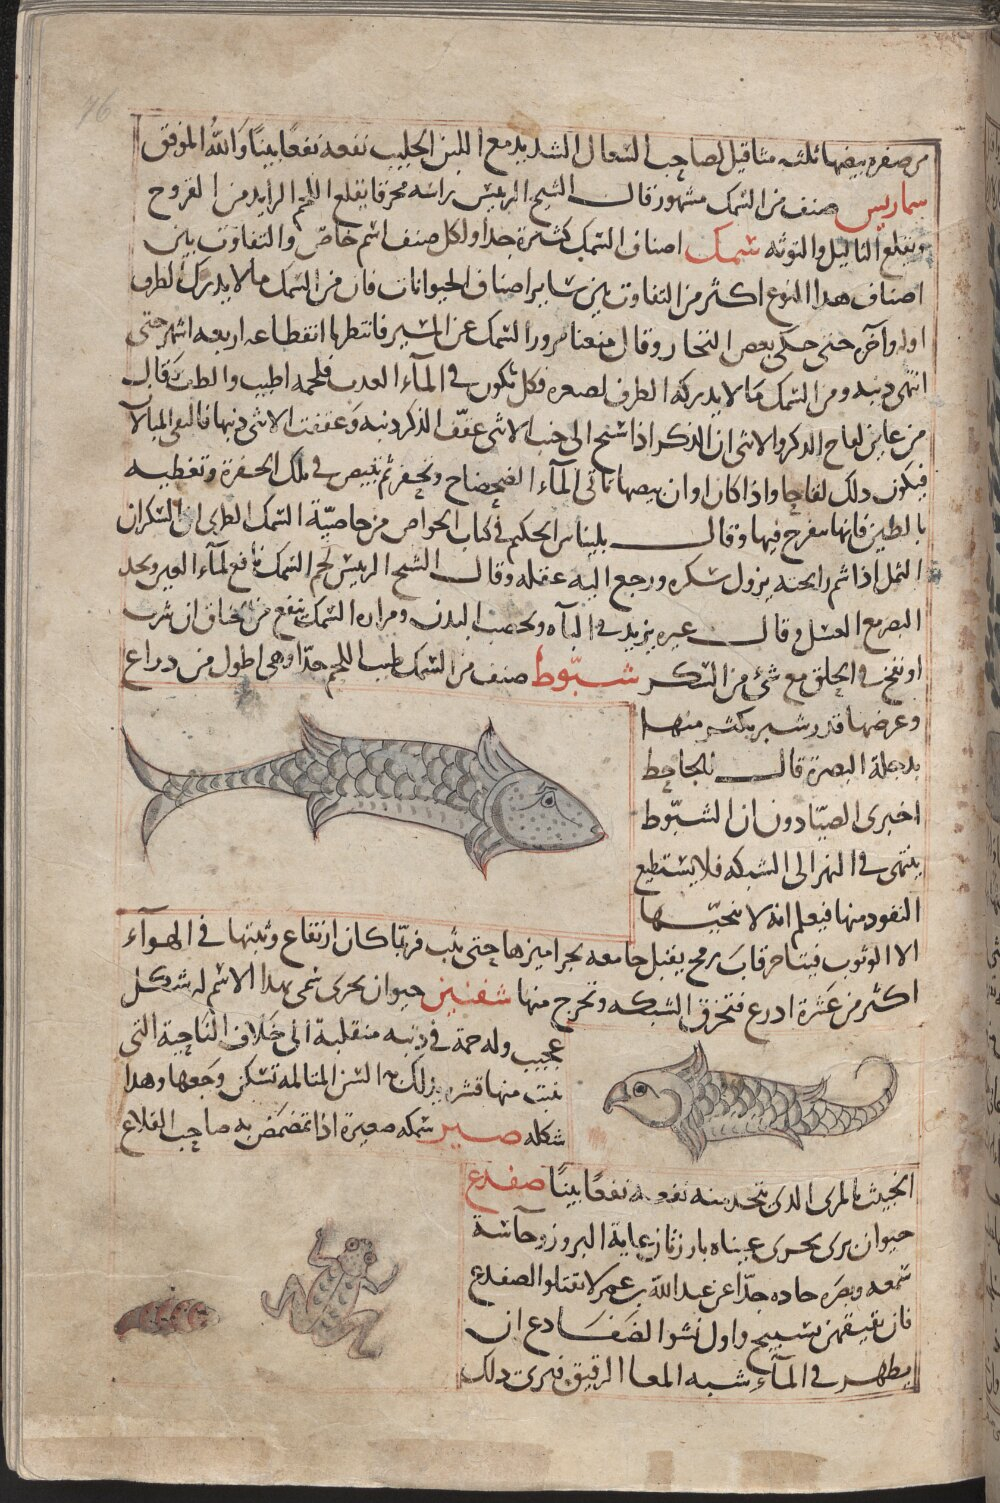 76
من صفرة بيضها ثلثه مثاقيل لصاحب السعال الشديد مع اللبن الحليب نفعه نفعًا بينًا والله الموفق
سماريس صنف من السمك مشهور قال الشيخ الرئيس راسه محرقا يقلع اللحم الزايد من القروح
ويقلع الثاليل والتوثه سمك اصناف السمك كثيرة جدا ولكل صنف اسم خاص والتفاوت بين
اصناف هدا النوع اكثر من التفاوت بين ساير اصناف الحيوانات فان من السمك ما لا يدرك الطرف
اوله وآخره حتى حكى بعص التجار وقال منعنا مرور السمك عن المسير فانتظرنا انقطاعه اربعه اشهر حتى
انتهى دنبه ومن السمك ما لا يدركه الطرف لصغره فكل تكون في المآء العدب فلحمه اطيب والطف وقال
من عاين لقاح الدكر والانثى ان الذكر اذا سنح الى جنب الانثى عقف الذكر دنبه وعقفت الانثى دنبها فالتقى المبالان
فيكون دلك لقاحا واذا كان اوان بيصها تاتى المآء الضحضاح وتحفر ثم تبيص في تلك الحفرة وتغطيه
بالطين فانها تفرح فيها وقال بليناس الحكيم في كتاب الخواص من خاصيّة السمك الطرى ان السكران
الثمل اذا شم رايحته يزول سكره ورجع اليه عقله وقال الشيخ الرئيس لحم السمك نافع لمآء العين ويحد
البصر مع العسل وقال غيره يزيد في البآه ويخصب البدن ومراره السمك ينفع من الخناق ان شرب
او نفخ في الحلق مع شئ من السكر شبّوط صنف من السمك طيب اللحم جدّا وهي اطول من دراع
وعرضها قدر شبر يكثر منها
بدجلة البصرة قال الجاحظ
اخبرنى الصيّادون ان الشبّوط
ينتهى في النهر الى الشبكه فلا يستطيع
النفود منها فيعلم انه لا ينجيه
الا الوثوب فيتاخر قاب رمح يقبل جامعه بجراميزها حتى يثب فربما كان ارتفاع وثبتها في الهوآء
اكثر من عشرة ادرع فتخرق الشبكه وتخرج منها شفنين حيوان بحرى سمى بهدا الاسم له شكل
عجيب وله حمة في دنبه منقلبة الى خلاف الناحية التى
ينبت منها قشره يزلك السن المتالمه تسكن وجعها وهدا
شكله صير سمكه صغيرة اذا تمضمض به صاحب القلاع
الخبيث بالمرى الدى يتخد منه نفعه نفعًا بينًا ضفدع
حيوان برى بحرى عيناه بارزتان غاية البروز وحآسة
سمعه وبصره حاده جدّا عن عبد الله بن عمر لا تقتلوا الضفدع
فان نقيقهن تسبيح واول نشوا لضفادع ان
يظهر في المآء شبه المعا الرقيق فيرى دلك